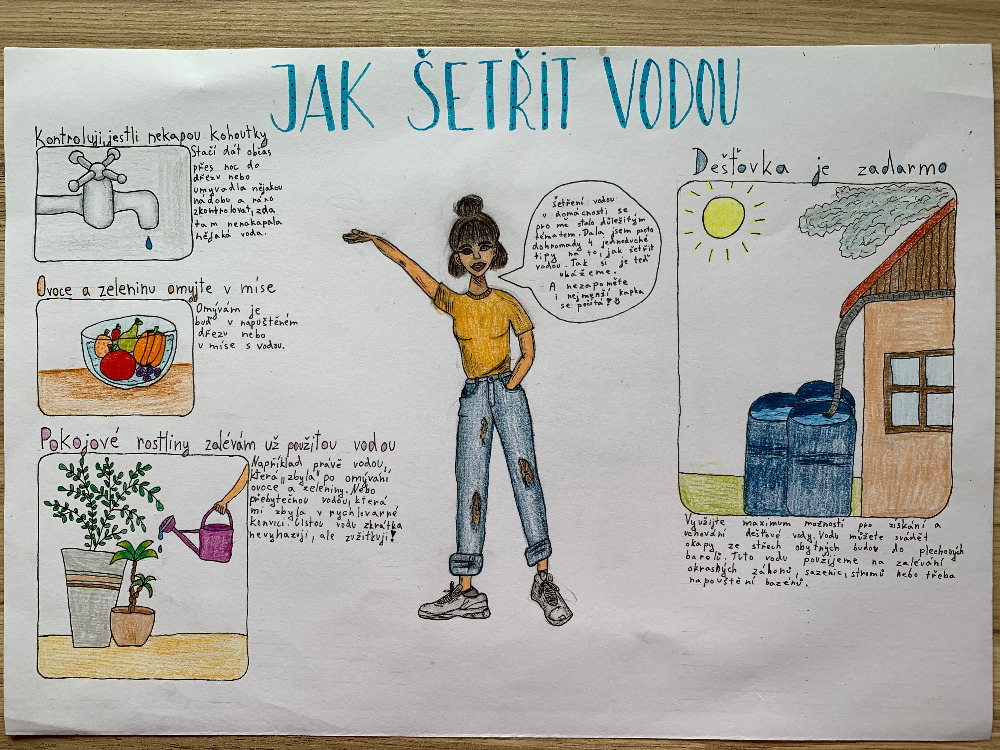 JAK ŠETŘIT VODOU
Kontroluji, jestli nekapou kohoutky
Stačí dát občas
přes noc do
dřezu nebo
umyvadla nějakou
nádobu a ráno
zkontrolovat, zda
tam nenakapala
nějaká voda.
Ovoce a zeleninu omyjte v míse
Omývám je
buď v napuštěném
dřezu nebo
v míse s vodou.
Pokojové rostliny zalévám už použitou vodou
Například právě vodou,
která „zbyla“ po omývání
ovoce a zeleniny. Nebo
přebytečnou vodou, která
mi zbyla v rychlovarné
konvici. Čistou vodu zkrátka
nevyhazuji, ale zužitkuji!
šetření vodou
v domácnosti se
pro mě stalo důležitým
tématem. Dala jsem proto
dohromady 4 jednoduché
tipy na to, jak šetřit
vodou. Tak si je teď
ukážeme.
A nezapomeňte
i nejmenší kapka
se počítá!
Dešťovka je zadarmo
Využijte maximum možností pro získání a
uchování dešťové vody. Vodu můžete svádět
okapy ze střech obytných budov do plechových
barelů. Tuto vodu použijeme na zalévání
okrasných záhonů, sazenic, stromů nebo třeba
napouštění bazénů.